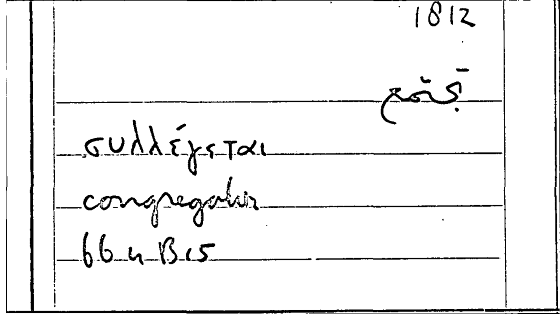 1812
συλλέγεται
congregatur
66 u B 15